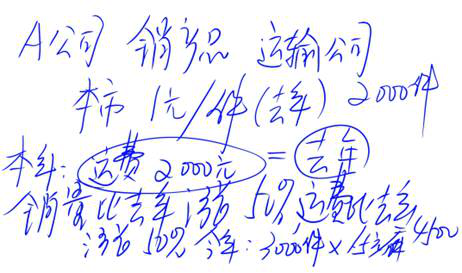 A公司 销产品 运输公司
本市 1元/件(去年) 2000件
本年: 运费 2000元 = 去年
销货比去年涨 50% 运费比去年
涨 50% 今年: 3000件× 4500